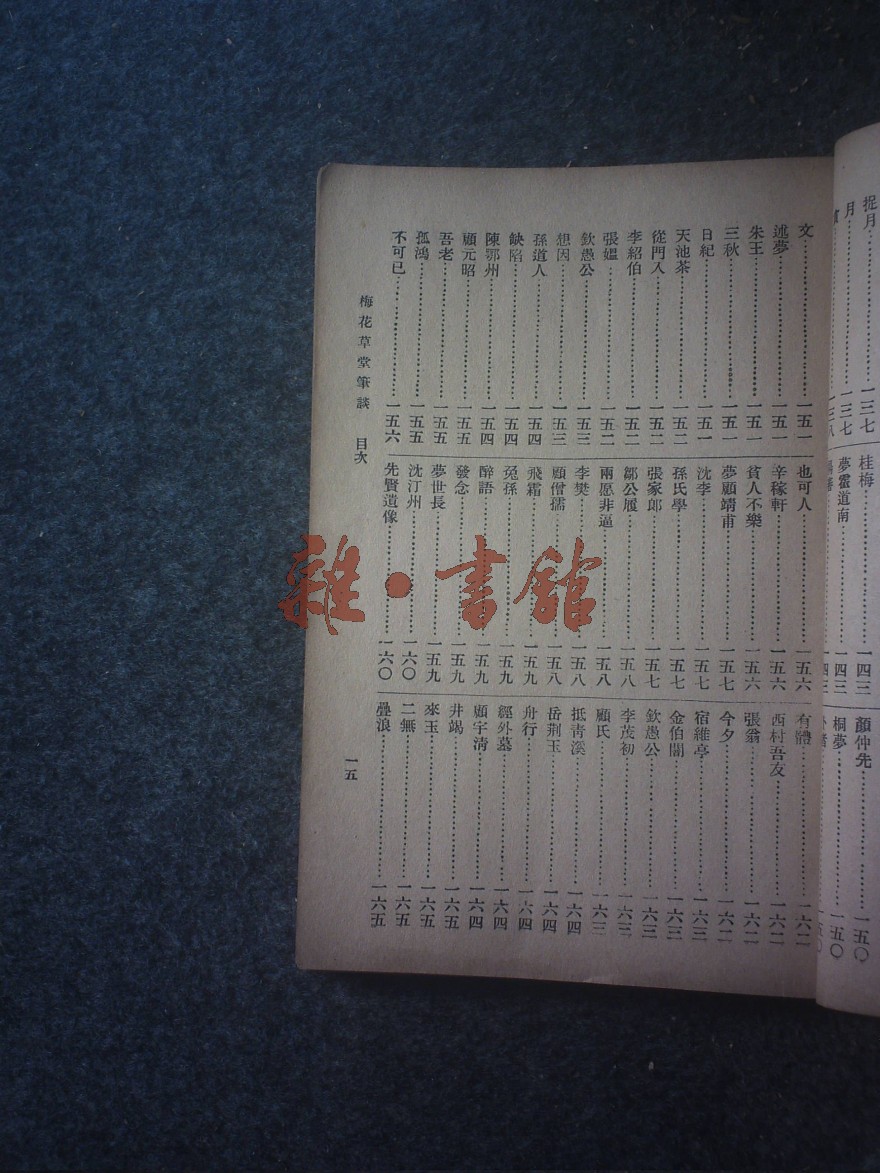 捉月……一三七
月……一三七
一三八
桂梅……一四三
夢霍道南……一四三
一四三
顏仲先……一五〇
桐夢……一五〇
一五〇
文……一五一
述夢……一五一
朱王……一五一
三秋……一五一
日紀……一五一
天池茶……一五二
從門入……一五二
李紹伯……一五二
張媼……一五二
欽愚公……一五三
想因……一五三
孫道人……一五四
缺陷……一五四
陳鄂州……一五四
顧元昭……一五五
吾老……一五五
孤鴻……一五五
不可已……一五六
也可人……一五六
辛稼軒……一五六
貧人不樂……一五六
夢顧靖甫……一五七
沈李……一五七
孫氏學……一五七
張家郎……一五七
鄒公履……一五八
兩愿非逼……一五八
李樊……一五八
顧僧孺……一五八
飛霜……一五九
兔孫……一五九
醉語……一五九
發念……一五九
夢世長……一五九
沈汀州……一六〇
先賢遺像……一六〇
有體……一六二
西村吾友……一六二
張翁……一六二
今夕……一六二
宿維亭……一六三
金伯闇……一六三
欽愚公……一六三
李茂初……一六三
顧氏……一六三
抵青溪……一六四
岳荆玉……一六四
舟行……一六四
經外墓……一六四
顧宇淸……一六四
井竭……一六五
來玉……一六五
二無……一六五
疊浪……一六五
梅花草堂筆談 目次
一五
雜·書館